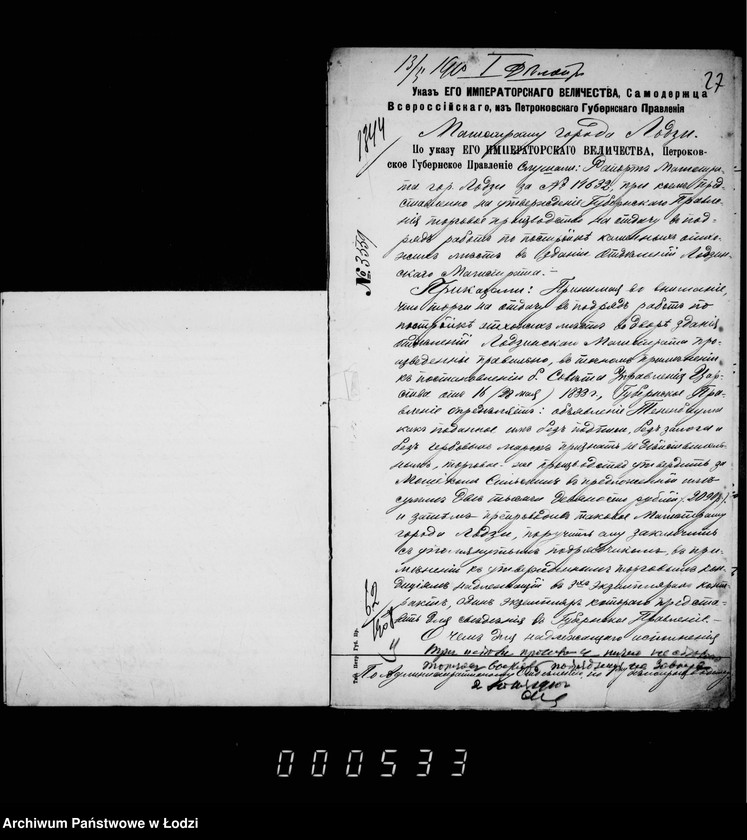 13/V 1900 I
27
Указъ ЕГО ИМПЕРАТОРСКАГО ВЕЛИЧЕСТВА, Самодержца
Всероссійскаго, изъ Петроковскаго Губернскаго Правленія
1844
Магистрату города Лодзи.
По указу ЕГО ИМПЕРАТОРСКАГО ВЕЛИЧЕСТВА, Петроков-
ское Губернское Правленіе Слушали: Рапортъ Магистра-
та гор. Лодзи за № при коемъ пред-
ставлено на утвержденіе Губернскаго Правле-
нія торговое производство на отдачу въ под-
рядъ работъ по постройкѣ каменныхъ отхо-
жихъ мѣстъ въ зданіи отдѣленій Лодзин-
скаго Магистрата. —
№ 3559
Приказали: Принимая во вниманіе,
что торги на отдачу въ подрядъ работъ по
постройкѣ отхожихъ мѣстъ во дворѣ зданія
отдѣленій Лодзинскаго Магистрата про-
изведены правильно, въ точномъ примѣненіи
къ постановленію б. Совѣта Управленія Цар-
ства отъ 16 (28 мая) 1833 г., Губернское Пра-
вленіе опредѣляетъ: объявленіе
какъ поданное имъ безъ подписи, безъ залога и
безъ гербовыхъ марокъ признать не дѣйствитель-
нымъ, торговое же производство утвердить за
въ предложенной имъ
суммѣ Двѣ тысячи девяносто рублей
и затѣмъ препроводивъ таковое Магистрату
города Лодзи, поручить ему заключить
съ упомянутымъ подрядчикомъ, въ при-
мѣненіи къ утвержденнымъ торговымъ кон-
диціямъ надлежащій въ 2хъ экземплярахъ конт-
рактъ, одинъ экземпляръ котораго предста-
вить для свѣдѣнія въ Губернское Правленіе. —
О чемъ для надлежащаго исполненія
62
Тип. Петр. Губ. Пр.
По Административному Отдѣленію
000533
Archiwum Państwowe w Łodzi